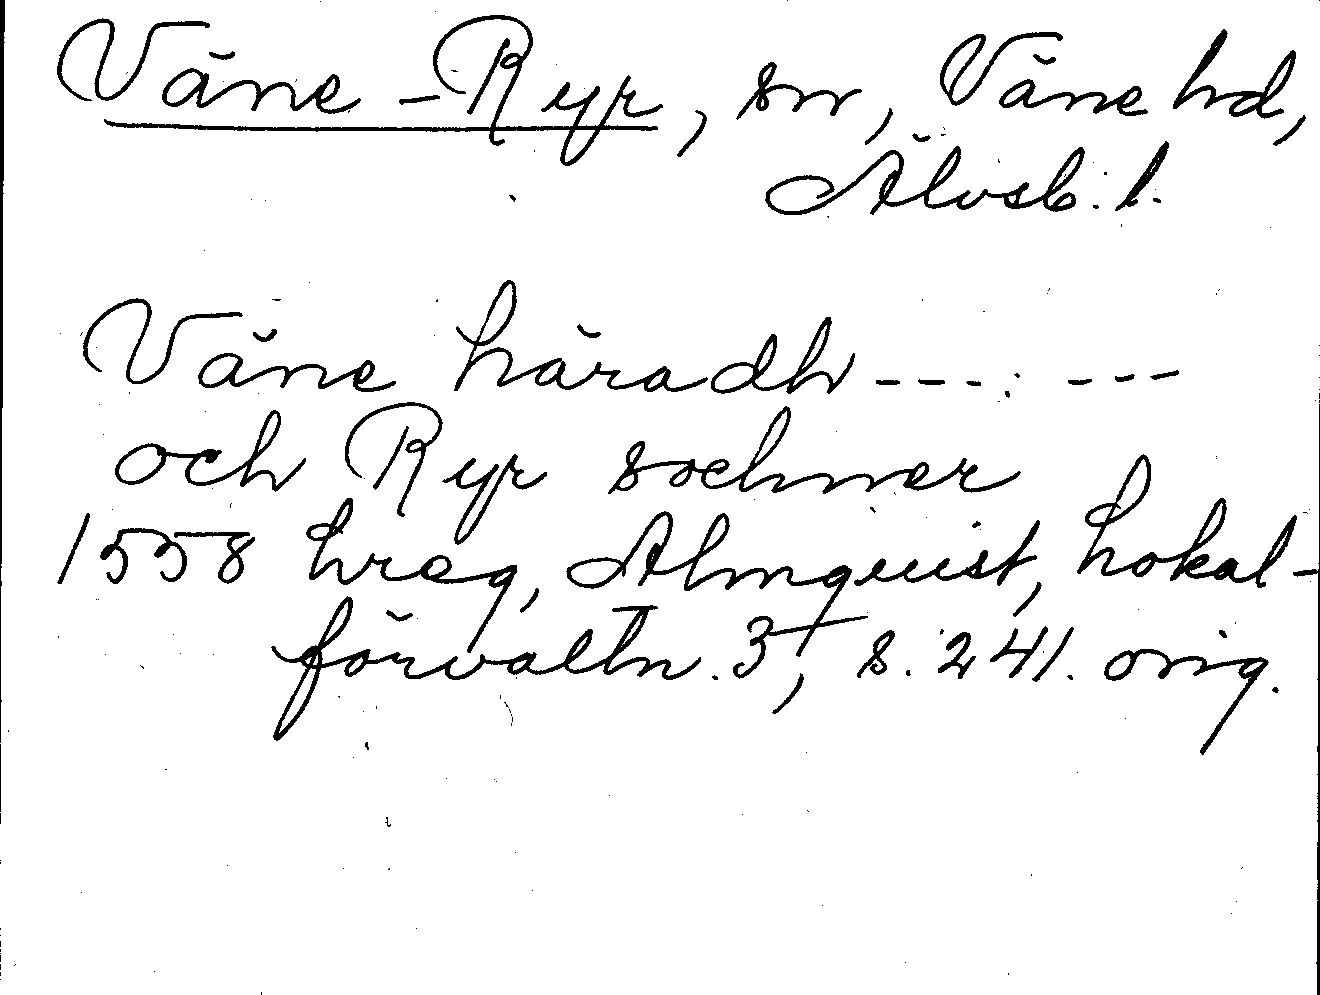 Väne-Ryr, sn, Väne hd,
Älvsb. l.
Väne häradh --- . ---
och Ryr sochner
1558 hreg, Almquist, Lokal-
förvaltn. 3, s. 241. orig.